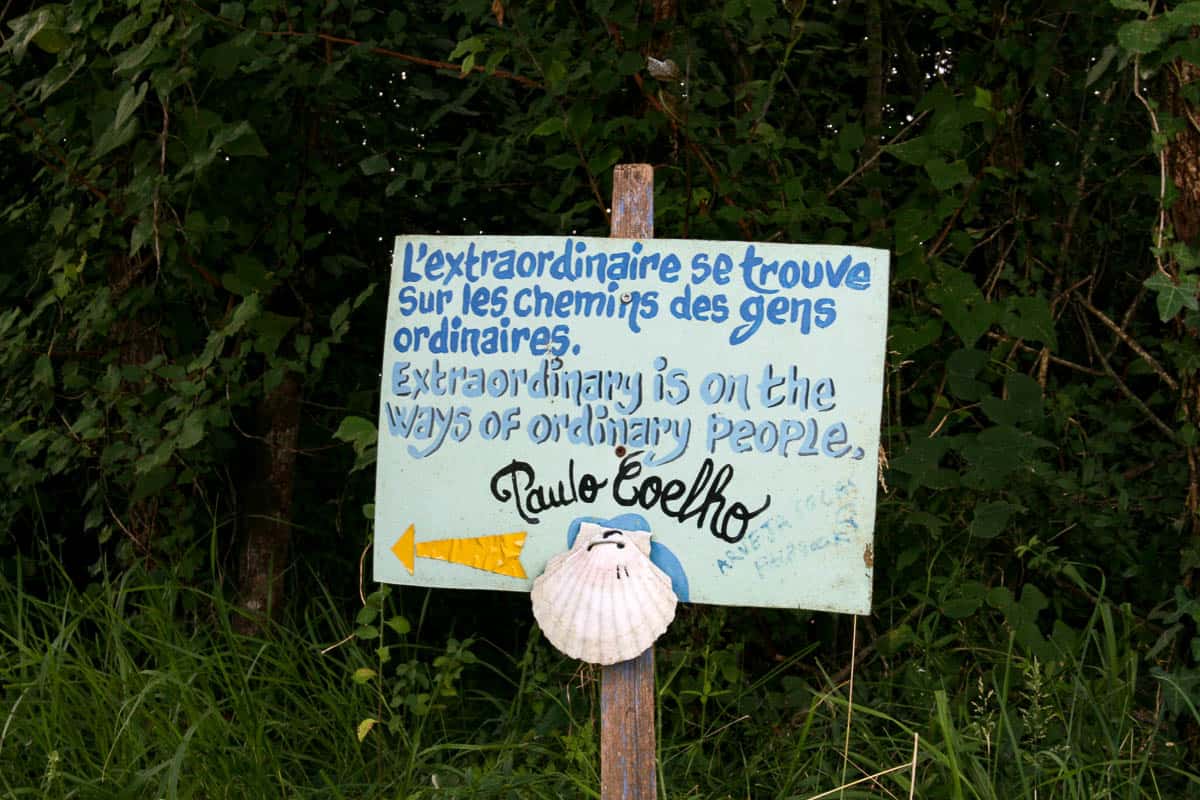 L'extraordinaire se trouve
sur les chemins des gens
ordinaires.
Extraordinary is on the
ways of ordinary people,
Paulo Coelho